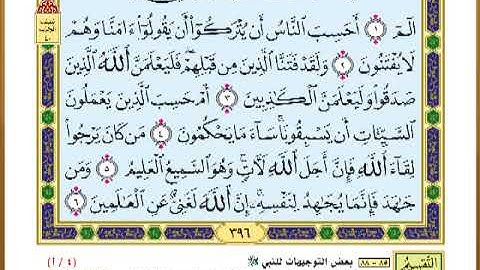 الٓمٓ ١ أَحَسِبَ ٱلنَّاسُ أَن يُتْرَكُوٓا۟ أَن يَقُولُوٓا۟ ءَامَنَّا وَهُمْ
لَا يُفْتَنُونَ ٢ وَلَقَدْ فَتَنَّا ٱلَّذِينَ مِن قَبْلِهِمْ ۖ فَلَيَعْلَمَنَّ ٱللَّهُ ٱلَّذِينَ
صَدَقُوا۟ وَلَيَعْلَمَنَّ ٱلْكَـٰذِبِينَ ٣ أَمْ حَسِبَ ٱلَّذِينَ يَعْمَلُونَ
ٱلسَّيِّـَٔاتِ أَن يَسْبِقُونَا ۚ سَآءَ مَا يَحْكُمُونَ ٤ مَن كَانَ يَرْجُوا۟
لِقَآءَ ٱللَّهِ فَإِنَّ أَجَلَ ٱللَّهِ لَـَٔاتٍ ۚ وَهُوَ ٱلسَّمِيعُ ٱلْعَلِيمُ ٥ وَمَن
جَـٰهَدَ فَإِنَّمَا يُجَـٰهِدُ لِنَفْسِهِۦٓ ۚ إِنَّ ٱللَّهَ لَغَنِىٌّ عَنِ ٱلْعَـٰلَمِينَ ٦
٣٩٦
التقسيم ٨٥ - ٨٨ بعض التوجيهات للنبي ﷺ (٤ / ١)